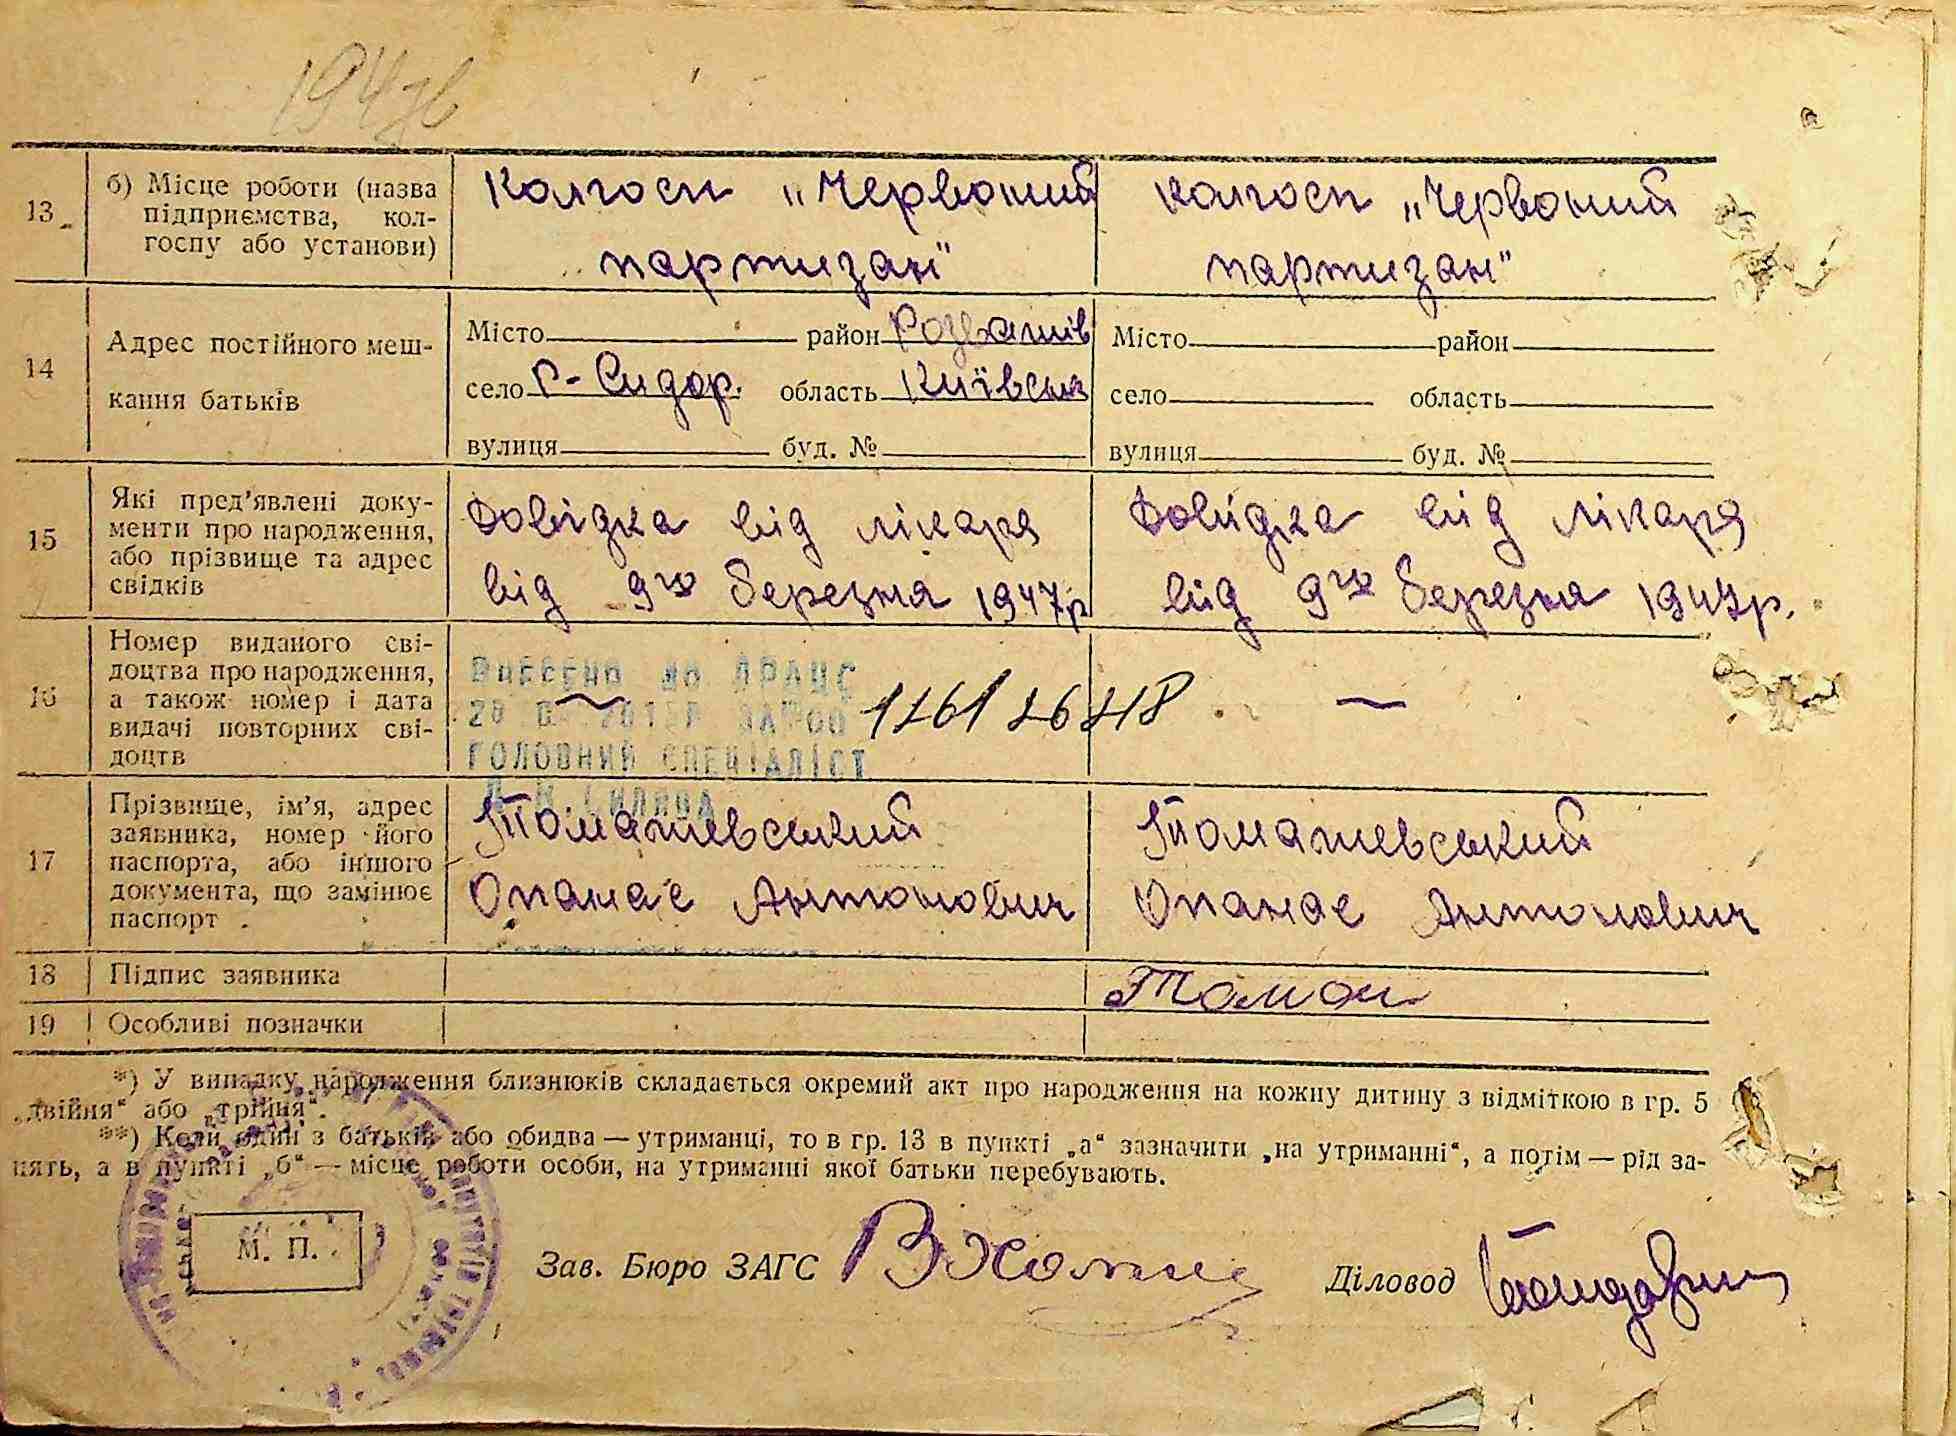 13
б) Місце роботи (назва
підприємства, кол-
госпу або установи)
Колгосп „Червоний
партизан"
колгосп „Червоний
партизан"
14
Адрес постійного меш-
кання батьків
Місто район
село С-Сидор. область Київськ
вулиця буд. №
Місто район
село область
вулиця буд. №
15
Які пред'явлені доку-
менти про народження,
або прізвище та адрес
свідків
Довідка від лікаря
від 9го березня 1947р
Довідка від лікаря
від 9го березня 1947р.
16
Номер виданого сві-
доцтва про народження,
а також номер і дата
видачі повторних сві-
доцтв
Внесено до ДРАЦС
ГОЛОВНИЙ СПЕЦІАЛІСТ
17
Прізвище, ім'я, адрес
заявника, номер його
паспорта, або іншого
документа, що замінює
паспорт
Томашевський
Опанас Антонович
Томашевський
Опанас Антонович
18
Підпис заявника
Томаш
19
Особливі позначки
*) У випадку народження близнюків складається окремий акт про народження на кожну дитину з відміткою в гр. 5
„двійня" або „трійня".
**) Коли один з батьків або обидва — утриманці, то в гр. 13 в пункті „а" зазначити „на утриманні", а потім — рід за-
нять, а в пункті „б" — місце роботи особи, на утриманні якої батьки перебувають.
М. П.
Зав. Бюро ЗАГС
Діловод